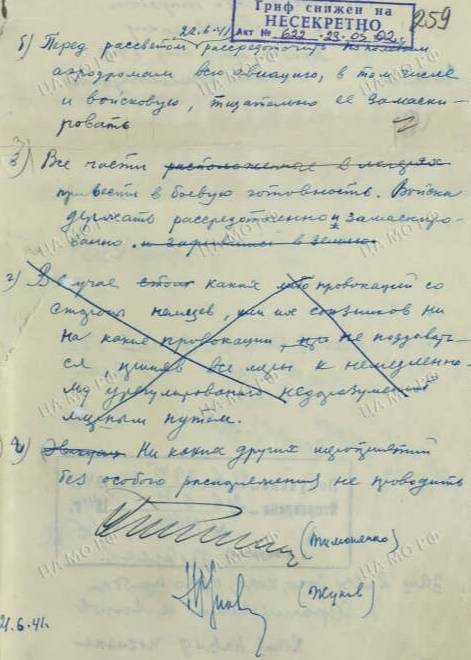 Гриф снижен на
НЕСЕКРЕТНО
Акт № 622 - 23.05.02 г.
259
22.6.41
б) Перед рассветом рассредоточить по полевым
аэродромам всю авиацию, в том числе
и войсковую, тщательно ее замаски-
ровать
в) Все части расположенные в лагерях
привести в боевую готовность. Войска
держать рассредоточенно и замаскиро-
ванно. и зарывшись в землю.
г) В случае каких либо провокаций со
стороны немцев, или их союзников ни
на какие провокации, не поддавать-
ся, приняв все меры к немедленно-
му урегулированию недоразумений
мирным путем.
Ни каких других мероприятий
без особого распоряжения не проводить
(Тимошенко)
(Жуков)
21.6.41.
ЦА МО РФ